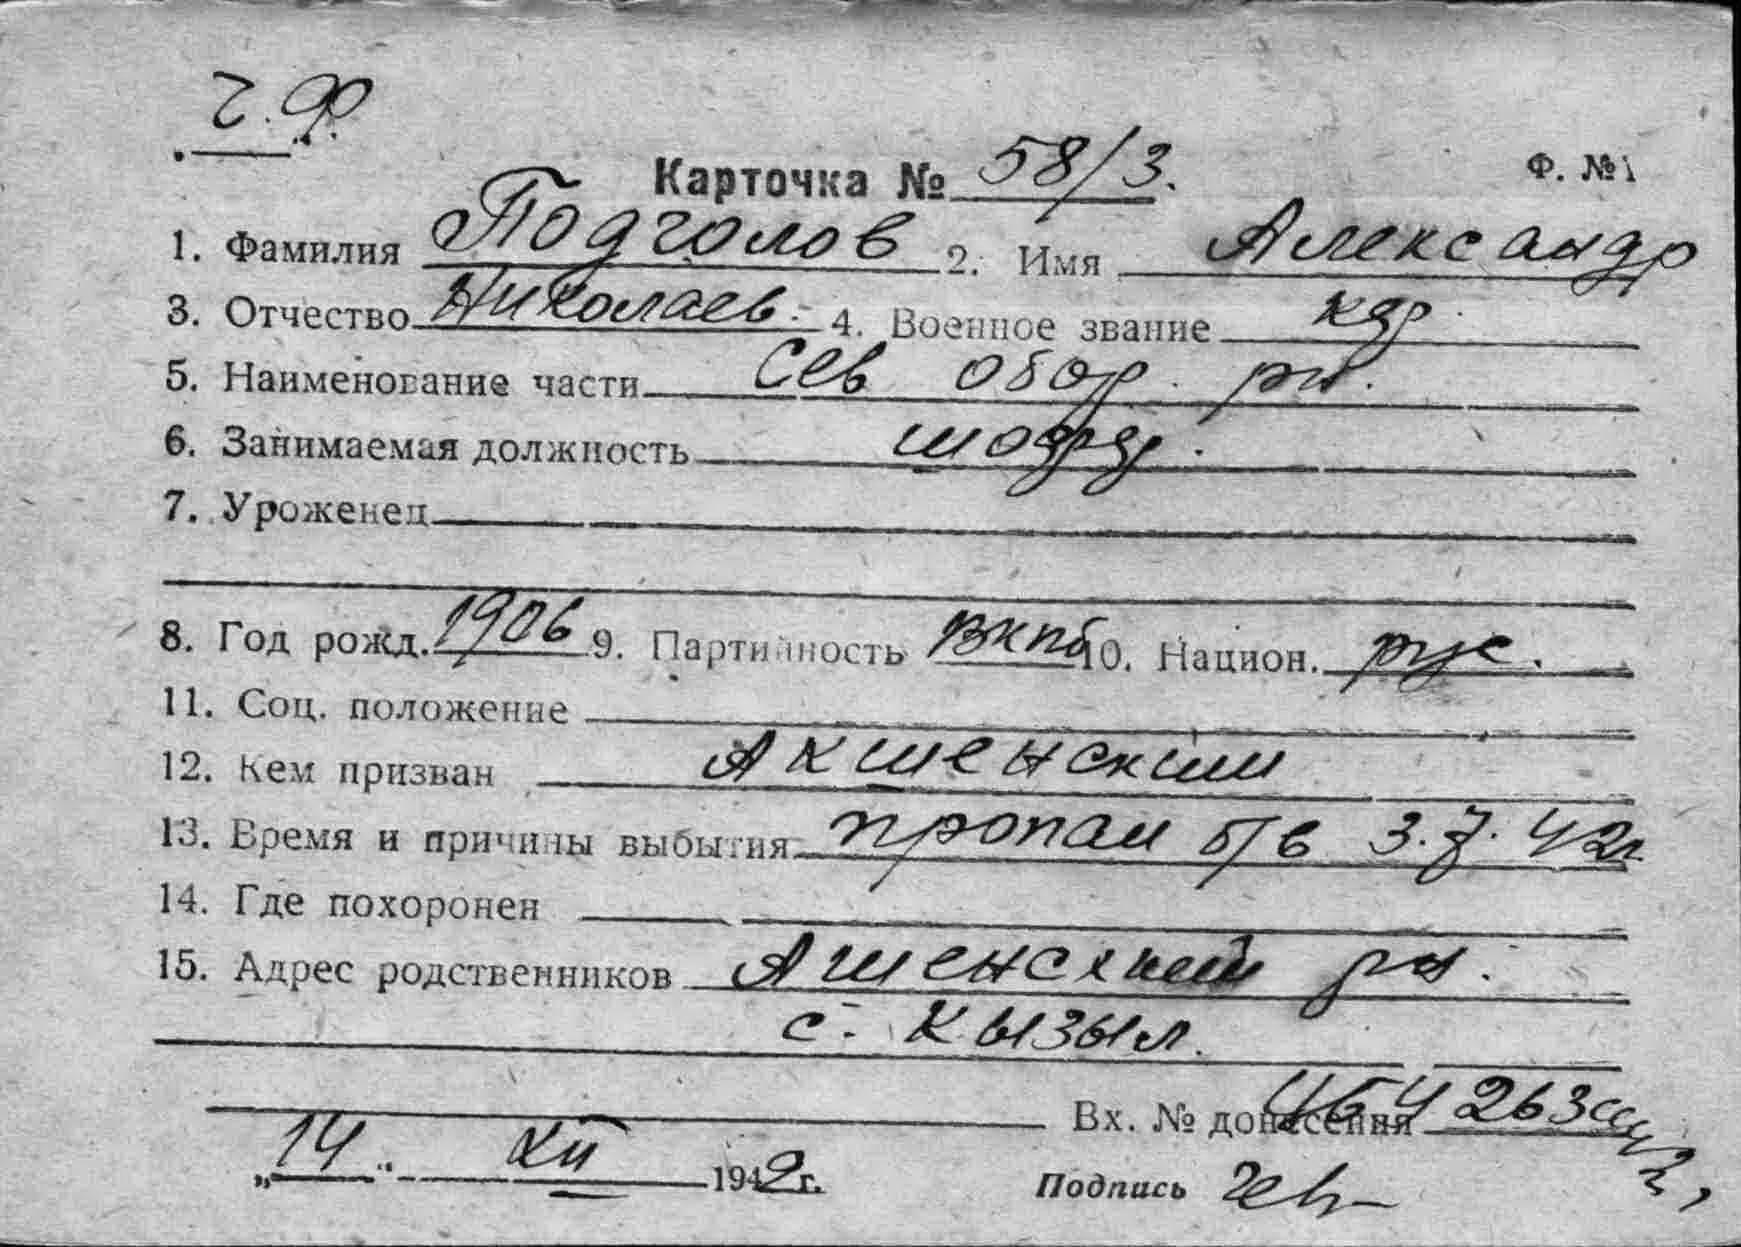 ч. Ф.
Карточка № 58/3. Ф. №1
1. Фамилия Подголов 2. Имя Александр
3. Отчество Николаев. 4. Военное звание кдр.
5. Наименование части Сев обор. рн.
6. Занимаемая должность шофер.
7. Уроженец
8. Год рожд. 1906 9. Партийность ВКПб 10. Национ. рус.
11. Соц. положение
12. Кем призван Акшенским
13. Время и причины выбытия пропал б/в 3.7.42г
14. Где похоронен
15. Адрес родственников Ашенский рн.
с. Кызыл.
Вх. № донесения 263
„14" XII 1942 г. Подпись